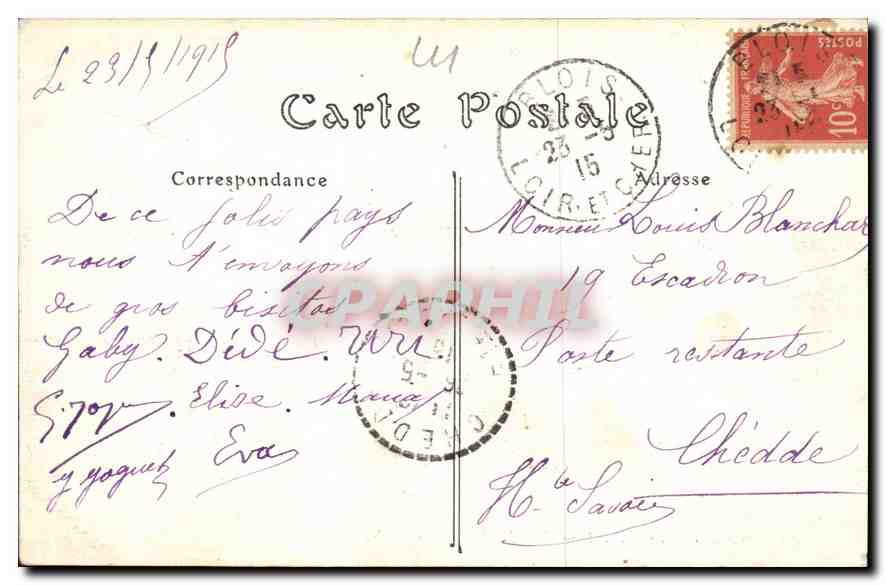 Le 23/5/1915
Carte Postale
BLOIS
23 -5
15
LOIR-ET-CHER
POSTES
REPUBLIQUE FRANCAISE
10c
Correspondance
De ce jolis pays
nous t'envoyons
de gros bisitos
Gaby. Dédé. Riri.
Elise.
Eva
y yoguet
Adresse
Monsieur Louis Blanchar
19 Escadron
Poste restante
Chédde
Hte Savoie
CHEDDE
CPAPHIL